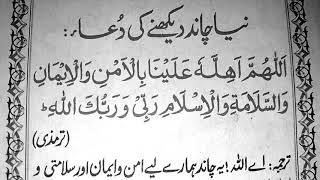 نیا چاند دیکھنے کی دُعاء:
اَللّٰهُمَّ اَهِلَّهٗ عَلَيْنَا بِالْاَمْنِ وَالْاِيْمَانِ
وَالسَّلَامَةِ وَالْاِسْلَامِ رَبِّيْ وَرَبُّكَ اللهُ ط
(ترمذی)
ترجمہ: اے اللہ! یہ چاند ہمارے لیے امن وایمان اور سلامتی و